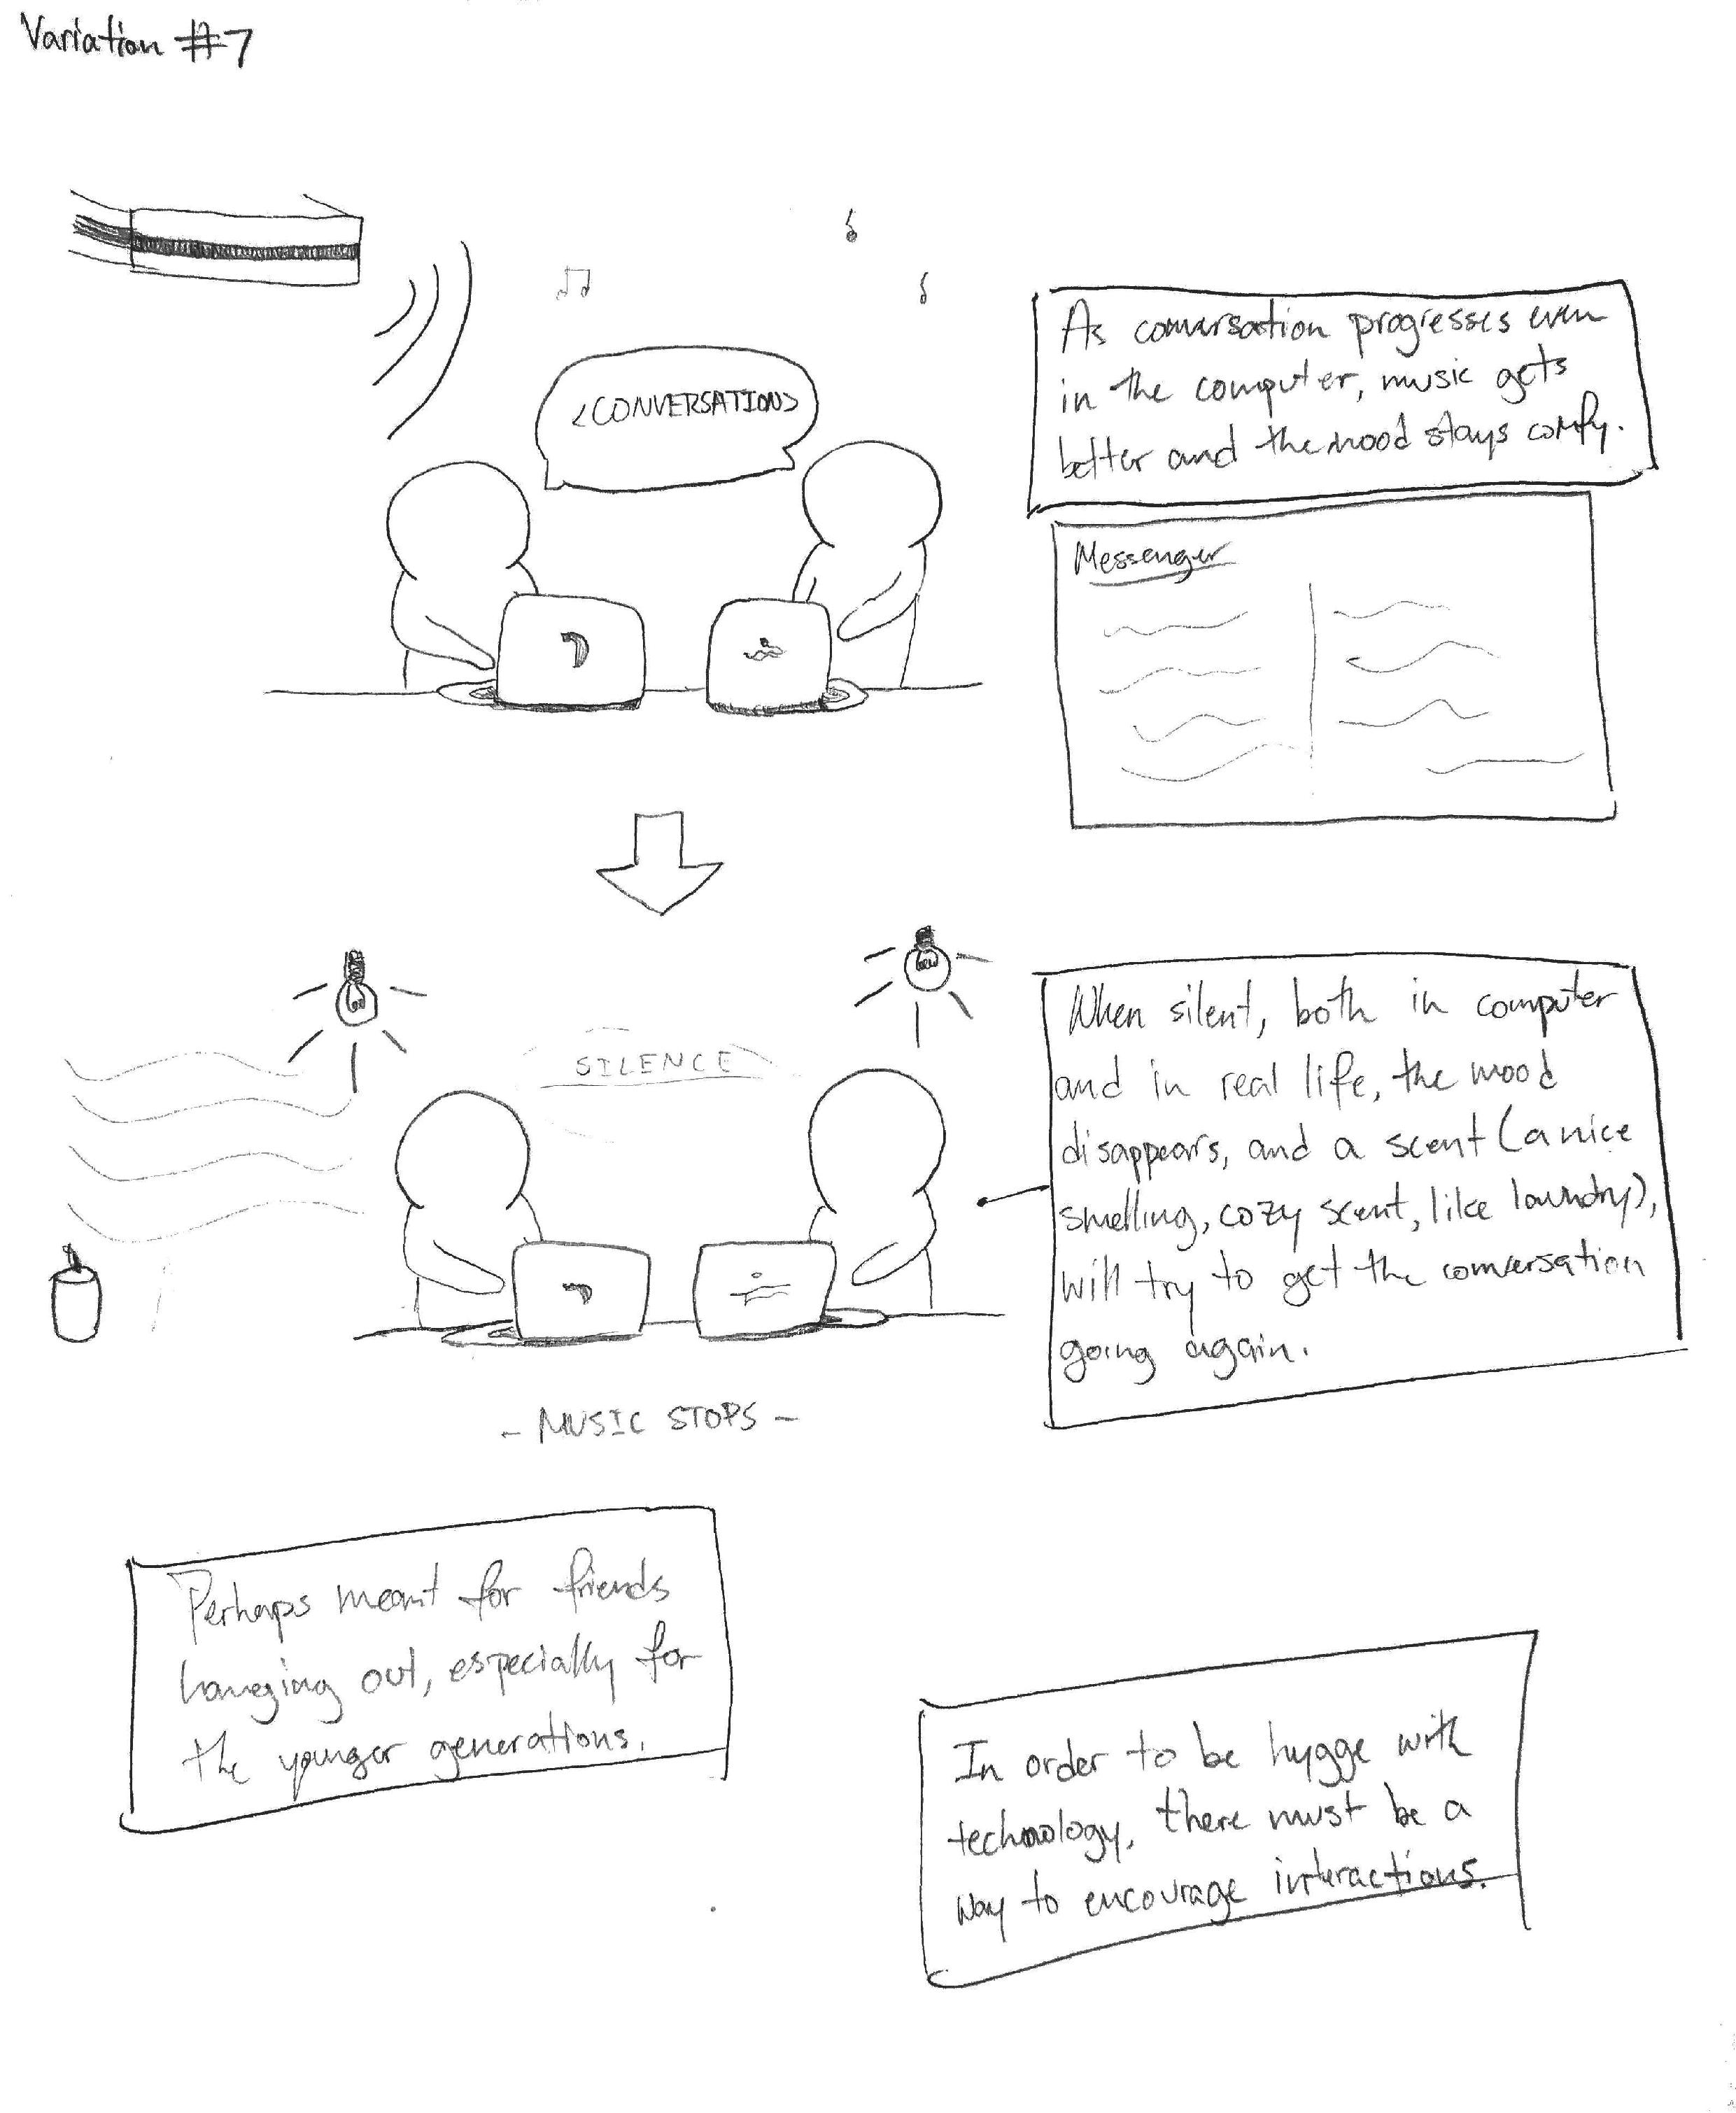 Variation #7
<CONVERSATION>
As conversation progresses even
in the computer, music gets
better and the mood stays comfy.
Messenger
SILENCE
When silent, both in computer
and in real life, the mood
disappears, and a scent (a nice
smelling, cozy scent, like laundry),
will try to get the conversation
going again.
- MUSIC STOPS -
Perhaps meant for friends
hanging out, especially for
the younger generations.
In order to be hygge with
technology, there must be a
way to encourage interactions.